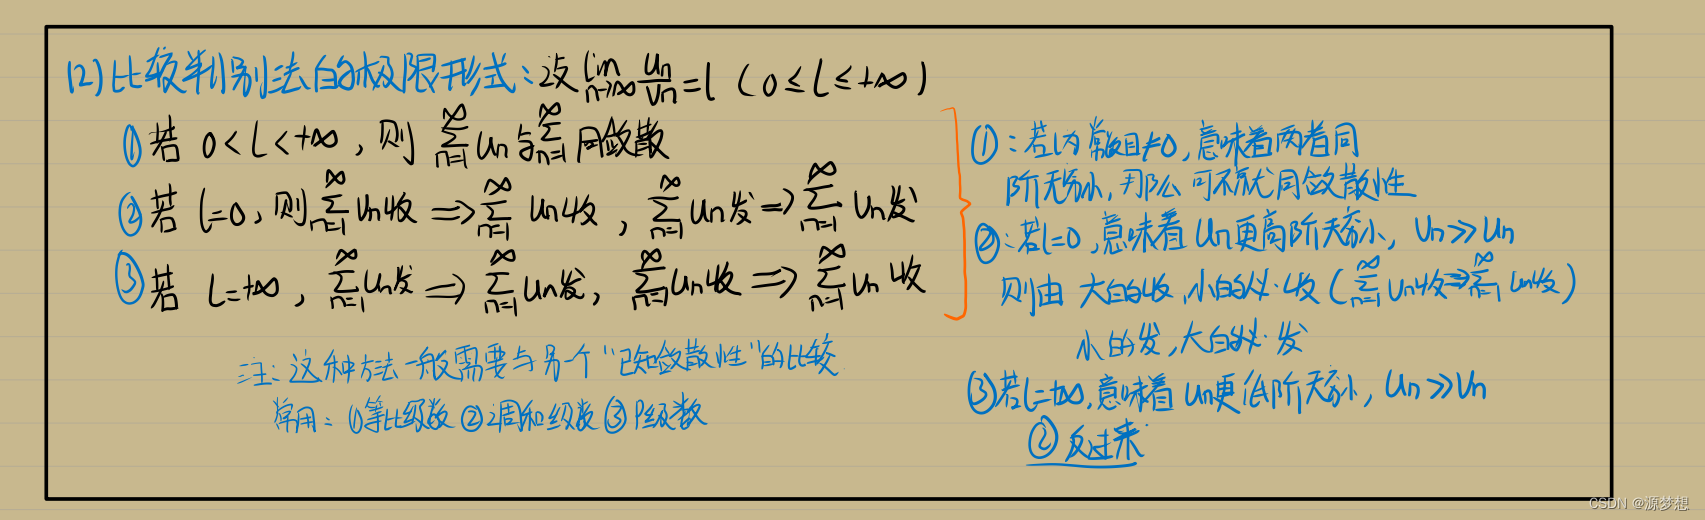 (2)比较判别法的极限形式:设 lim n→∞ un/vn = l (0≤l≤+∞)
①若 0<l<+∞, 则 ∑n=1∞ un与∑n=1∞ 同敛散
②若 l=0, 则∑n=1∞ vn收 ⇒ ∑n=1∞ un收, ∑n=1∞ un发 ⇒ ∑n=1∞ vn发
③若 l=+∞, ∑n=1∞ vn发 ⇒ ∑n=1∞ un发, ∑n=1∞ un收 ⇒ ∑n=1∞ vn收
注:这种方法一般需要与另一个"已知敛散性"的比较
常用:①等比级数 ②调和级数 ③P级数
①:若l为常数且≠0,意味着两者同
阶无穷小,那么可不就同敛散性
②:若l=0,意味着un更高阶无穷小, vn≫un
则由 大的收,小的必收(∑n=1∞ vn收⇒∑n=1∞ un收)
小的发,大的必发
③若l=+∞,意味着un更低阶无穷小, un≫vn
②反过来
CSDN @源梦想